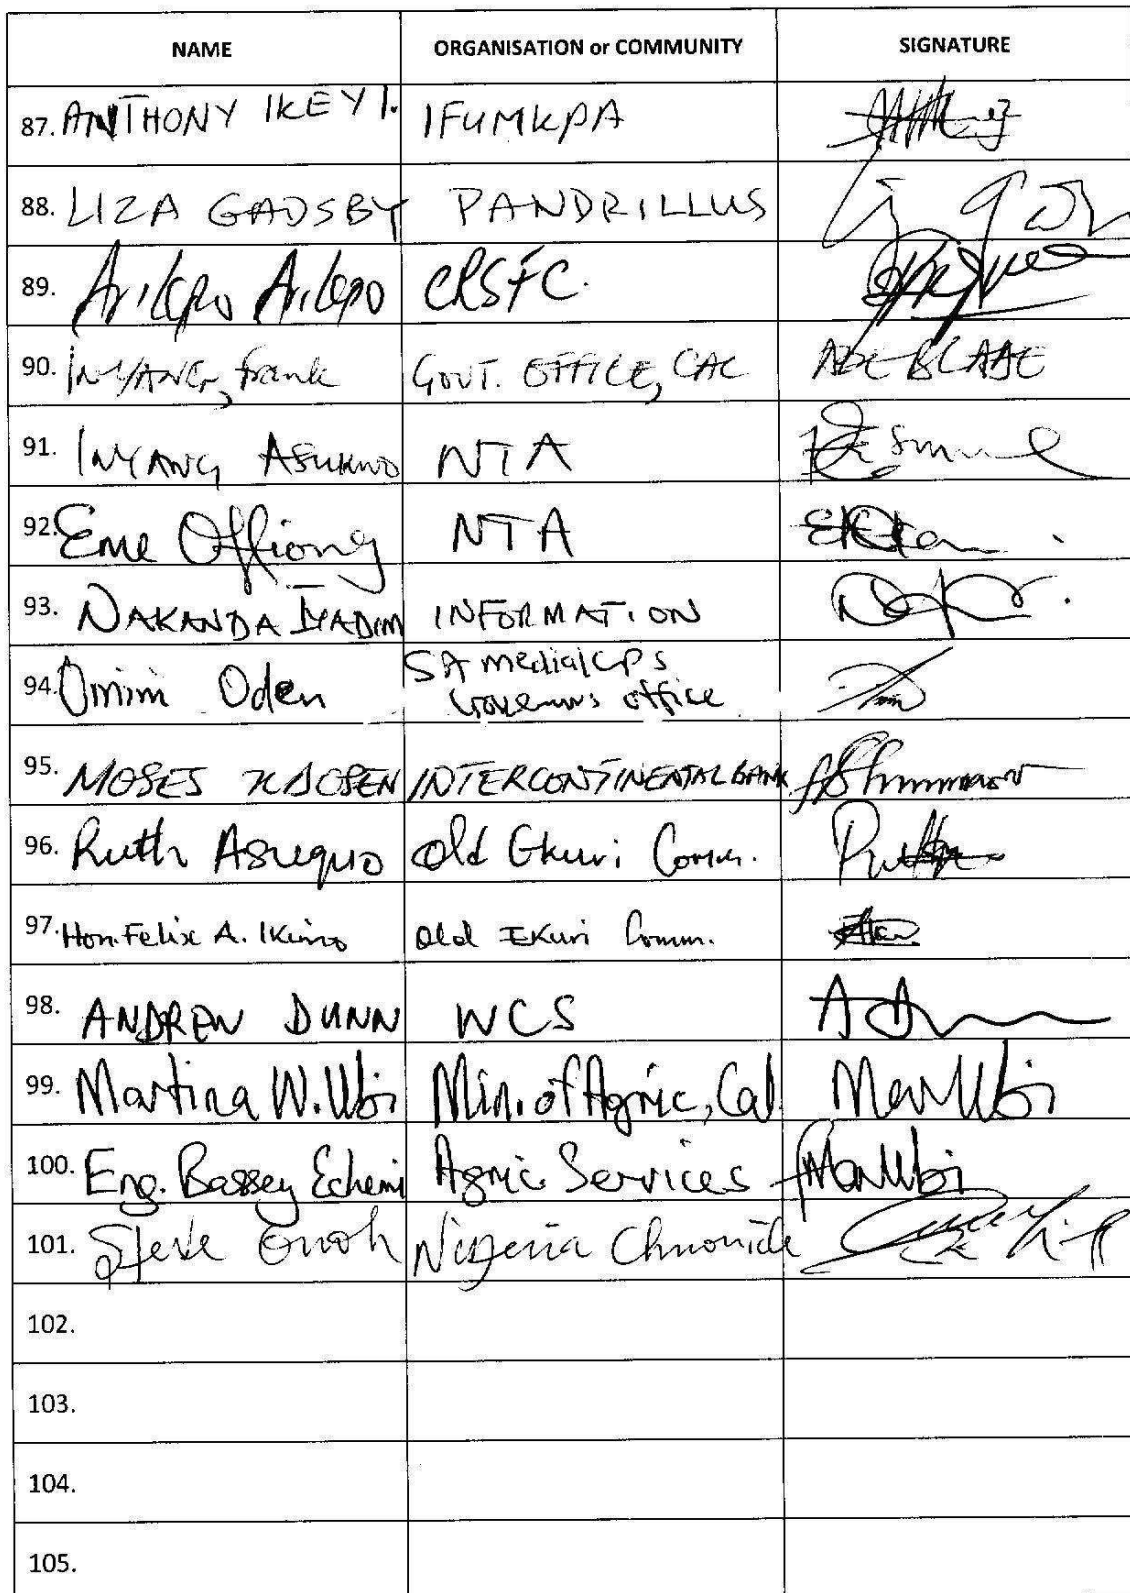 NAME ORGANISATION or COMMUNITY SIGNATURE
87. ANTHONY IKEYI. IFUMKPA
88. LIZA GADSBY PANDRILLUS
89. Arikpo Arikpo CRSFC.
90. INYANG, Frank GOVT. OFFICE, CAL
91. INYANG Asukwo NTA
92. Eme Offiong NTA
93. NAKANDA IYADIM INFORMATION
94. Omini Oden SA media/CPS
Governors office
95. MOSES INTERCONTINENTAL BANK
96. Ruth Asuquo Old Ekuri Comm.
97. Hon. Felix A. Ikimo Old Ekuri Comm.
98. ANDREW DUNN WCS
99. Martina W. Ubi Min. of Agric, Cal. MarUbi
100. Eng. Bassey Echemi Agric Services MarUbi
101. Steve Onoh Nigeria Chronicle
102.
103.
104.
105.